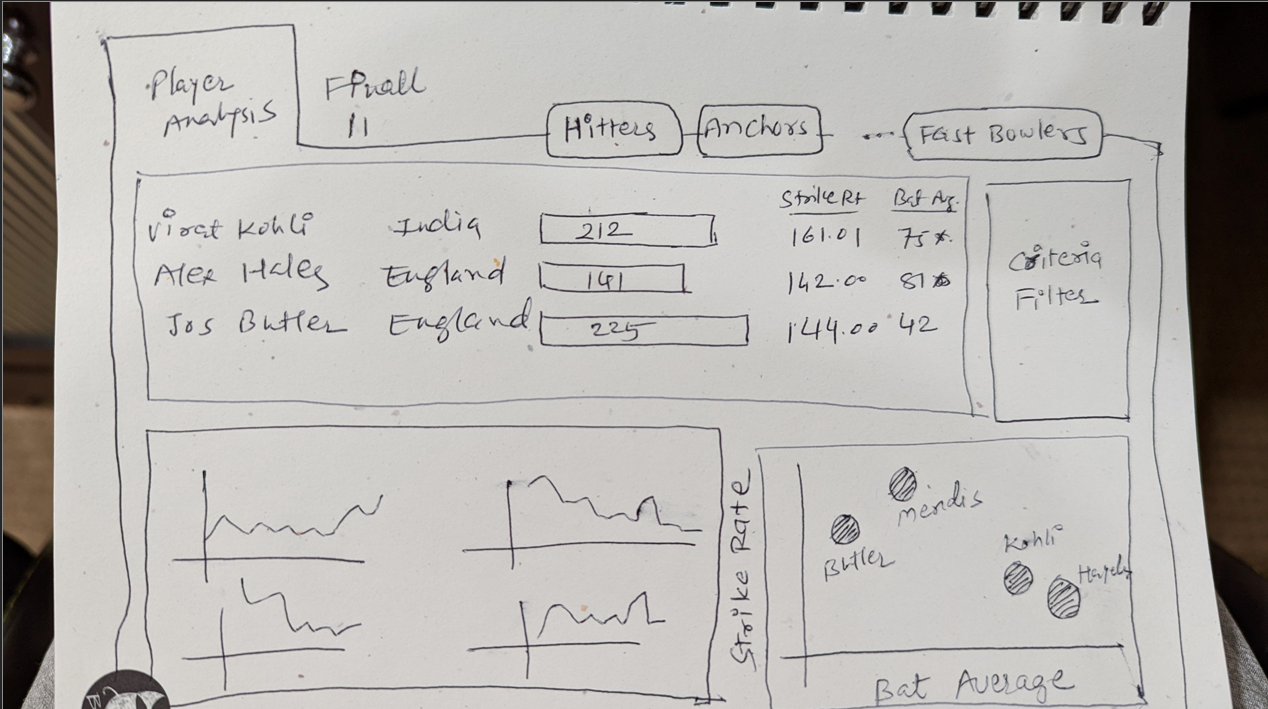 Player
Analysis
Final
11
Hitters
Anchors
....
Fast Bowlers
Strike Rt
Bat Ag.
Virat Kohli India 212 161.01 75*.
Alex Hales England 141 142.00 81*
Jos Butler England 225 144.00 42
Criteria
Filter
Strike Rate
Mendis
Butler
Kohli
Bat Average